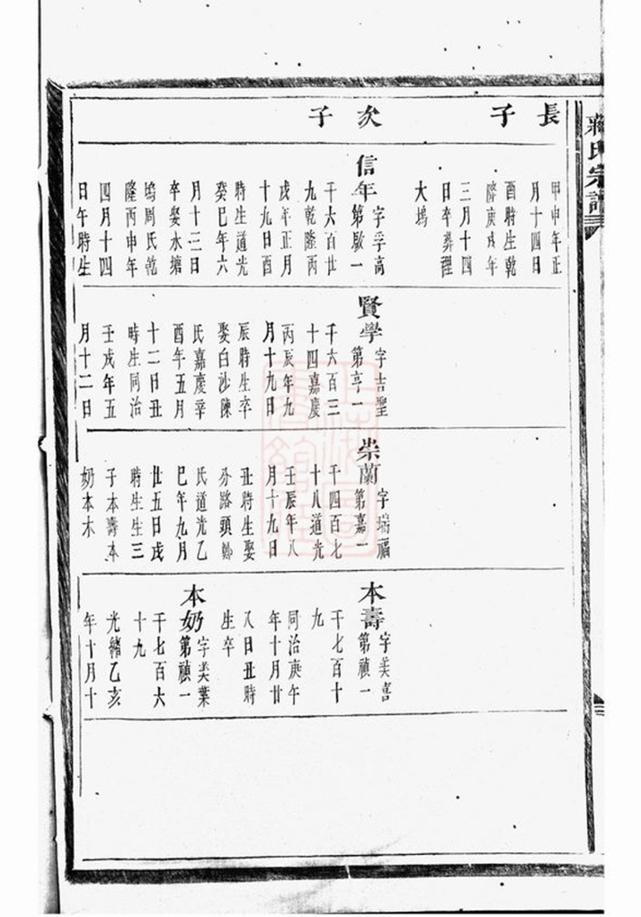 蔣氏宗譜
長子
次子
甲申年正
月十四日
酉時生乾
隆庚戌年
三月十四
日卒葬裡
大塢
信年字孚高
第一
千六百廿
九乾隆丙
戌年正月
十九日酉
時生道光
癸巳年六
月十三日
卒娶水塘
塢周氏乾
隆丙申年
四月十四
日午時生
賢學字吉聖
第亨一
千六百三
十四嘉慶
丙辰年九
月十九日
辰時生卒
娶白沙陳
氏嘉慶辛
酉年五月
十二日丑
時生同治
壬戌年五
月十二日
崇蘭字瑞福
第嘉一
千四百七
十八道光
壬辰年八
月十九日
丑時生娶
路頭鄭
氏道光乙
巳年九月
廿五日戌
時生生三
子本壽本
奶本木
本壽字美喜
第禎一
千七百十
九
同治庚午
年十月廿
八日丑時
生卒
本奶字美葉
第禎一
千七百六
十九
光緒乙亥
年十月十